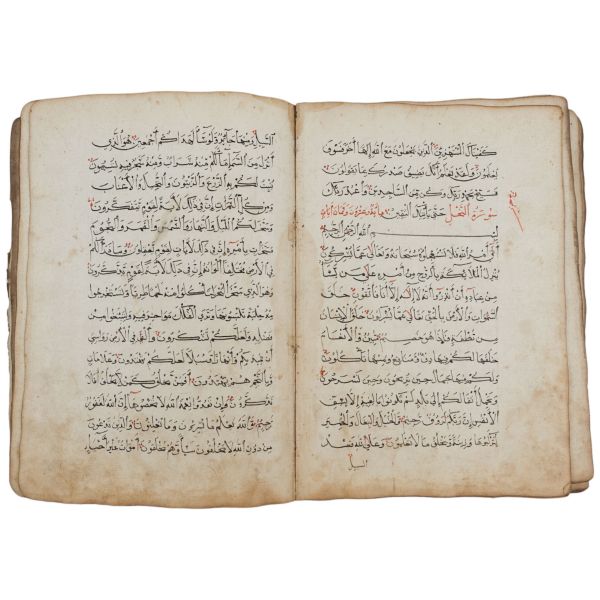 كفيناك المستهزئين الذين يجعلون مع الله الها اخر فسوف
يعلمون ولقد نعلم انك يضيق صدرك بما يقولون
فسبح بحمد ربك وكن من الساجدين واعبد ربك
سورة النحل حتى ياتيك اليقين مائة وعشرون وثمان ايات
بسم الله الرحمن الرحيم
اتى امر الله فلا تستعجلوه سبحانه وتعالى عما يشركون
ينزل الملائكة بالروح من امره على من يشاء
من عباده ان انذروا انه لا اله الا انا فاتقون خلق
السموات والارض بالحق تعالى عما يشركون خلق الانسان
من نطفة فاذا هو خصيم مبين والانعام
خلقها لكم فيها دفء ومنافع ومنها تاكلون
ولكم فيها جمال حين تريحون وحين تسرحون
وتحمل اثقالكم الى بلد لم تكونوا بالغيه الا بشق
الانفس ان ربكم لرؤف رحيم والخيل والبغال والحمير
لتركبوها وزينة ويخلق ما لا تعلمون وعلى الله قصد
السبيل
السبيل ومنها جائر ولو شاء لهداكم اجمعين هو الذي
انزل من السماء ماء لكم منه شراب ومنه شجر فيه تسيمون
ينبت لكم به الزرع والزيتون والنخيل والاعناب
ومن كل الثمرات ان في ذلك لاية لقوم يتفكرون
وسخر لكم الليل والنهار والشمس والقمر والنجوم
مسخرات بامره ان في ذلك لايات لقوم يعقلون وما ذرا لكم
في الارض مختلفا الوانه ان في ذلك لاية لقوم يذكرون
وهو الذي سخر البحر لتاكلوا منه لحما طريا وتستخرجوا
منه حلية تلبسونها وترى الفلك مواخر فيه ولتبتغوا من
فضله ولعلكم تشكرون والقى في الارض رواسي
ان تميد بكم وانهارا وسبلا لعلكم تهتدون وعلامات
وبالنجم هم يهتدون افمن يخلق كمن لا يخلق افلا
تذكرون وان تعدوا نعمة الله لا تحصوها ان الله لغفور
رحيم والله يعلم ما تسرون وما تعلنون والذين يدعون
من دون الله لا يخلقون شيئا وهم يخلقون اموات غير احياء